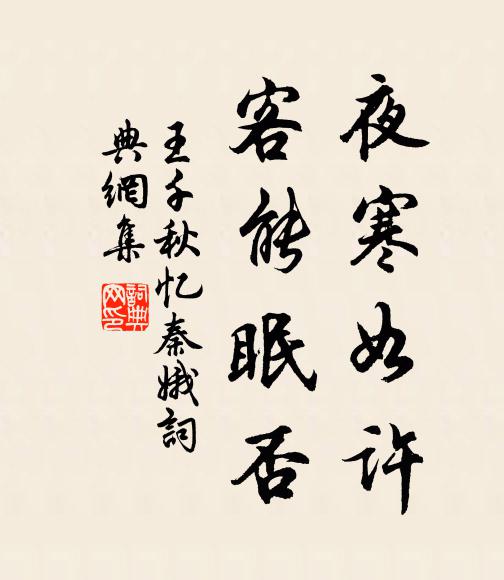 夜寒如许
客能眠否
王千秋忆秦娥詞
典網集
詞典
网印